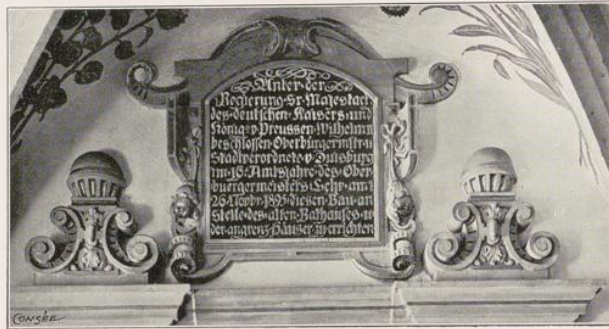 Unter der
Regierung Sr. Majestaet
des deutschen Kaisers und
Königs v. Preussen Wilhelm II
beschlossen Oberbürgermstr. u.
Stadtverordnete v. Duisburg
im 16. Amtsjahre des Ober-
buergermeisters Lehr am
26. Novbr. 1895 diesen Bau an
Stelle des alten Rathauses u.
der angrenz. Häuser zu errichten
CONSÉE